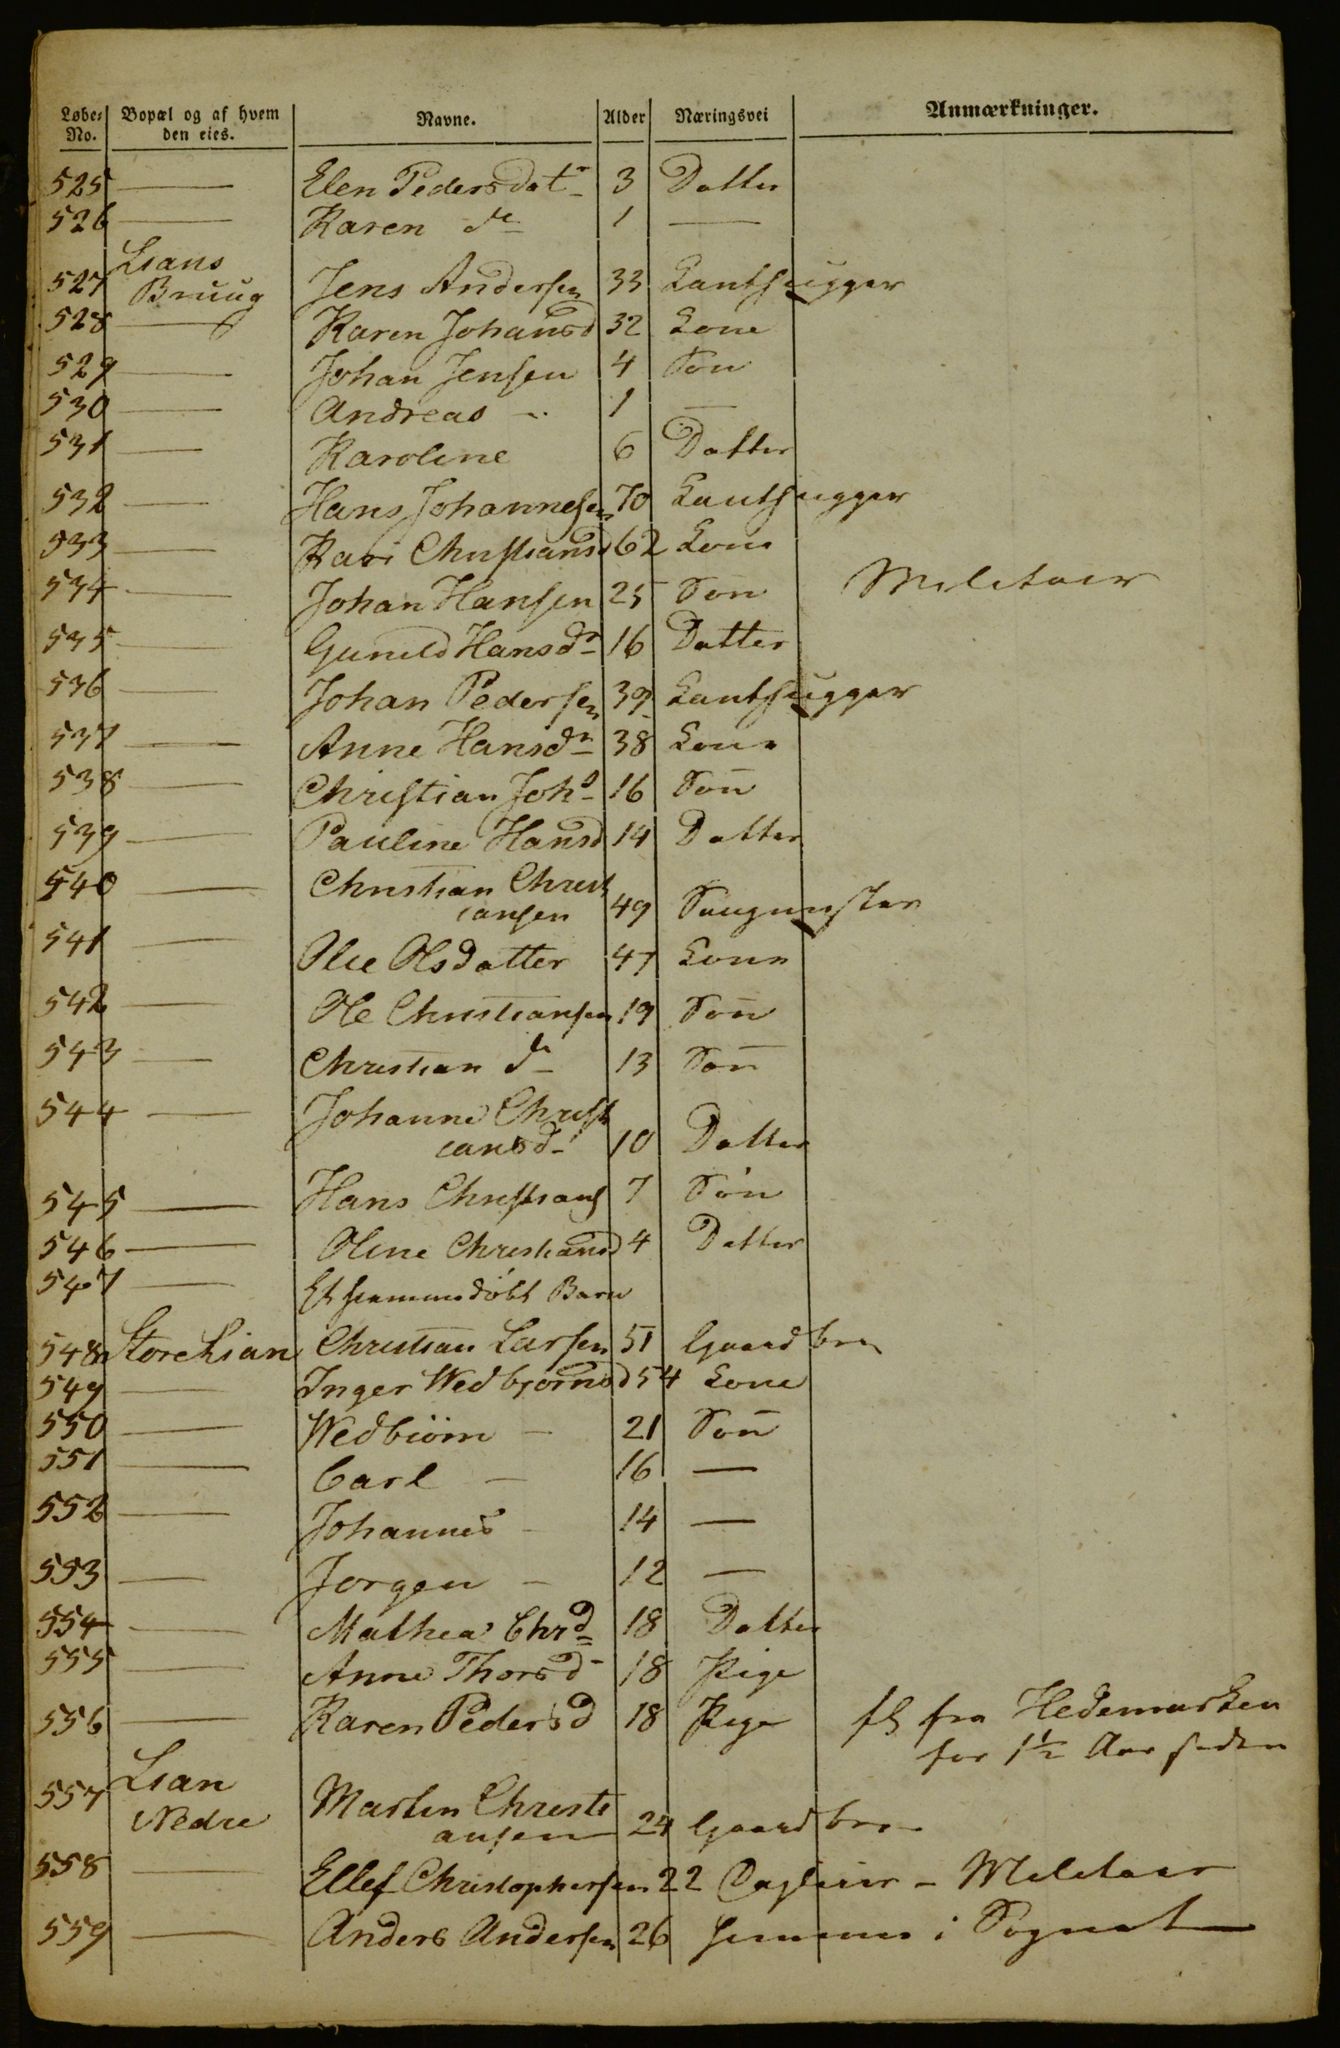 Løbe- No. Bopæl og af hvem den eies. Navne. Alder Næringsvei Anmærkninger.
525 — Elen Pedersdatr 3 Datter
526 — Karen do 1 —
527 Lians Bruug Jens Andersen 33 Kanthugger
528 — Karen Johansd 32 Kone
529 — Johan Jensen 4 Søn
530 — Andreas - 1 —
531 — Karoline 6 Datter
532 — Hans Johannesen 70 Kanthugger
533 — Kari Christiansd 62 Kone
534 — Johan Hansen 25 Søn Militair
535 — Gunild Hansdr 16 Datter
536 — Johan Pedersen 39 Kanthugger
537 — Anne Hansdr 38 Kone
538 — Christian Johs 16 Søn
539 — Pauline Hansd 14 Datter
540 — Christian Christ
iansen 49 Saugmester
541 — Olie Olsdatter 47 Kone
542 — Ole Christiansen 19 Søn
543 — Christian do 13 Søn
544 — Johanne Christ
iansd 10 Datter
545 — Hans Christians 7 Søn
546 — Oline Christiansd 4 Datter
547 — Et hiemmedøbt Barn
548 Store Lian Christian Larsen 51 Gaardbr
549 — Inger Wedbjørnsd 54 Kone
550 — Wedbiørn - 21 Søn
551 — Carl - 16 —
552 — Johannes - 14 —
553 — Jørgen - 12 —
554 — Mathea Chrd 18 Datter
555 — Anne Thorsd 18 Pige
556 — Karen Pedersd 18 Pige fl fra Hedemarken
for 1½ Aar siden
557 Lian Nedre Martin Christi
ansen 24 Gaardbr
558 — Ellef Christophersen 22 - Militair
559 — Anders Andersen 26 hiemme i Sognet